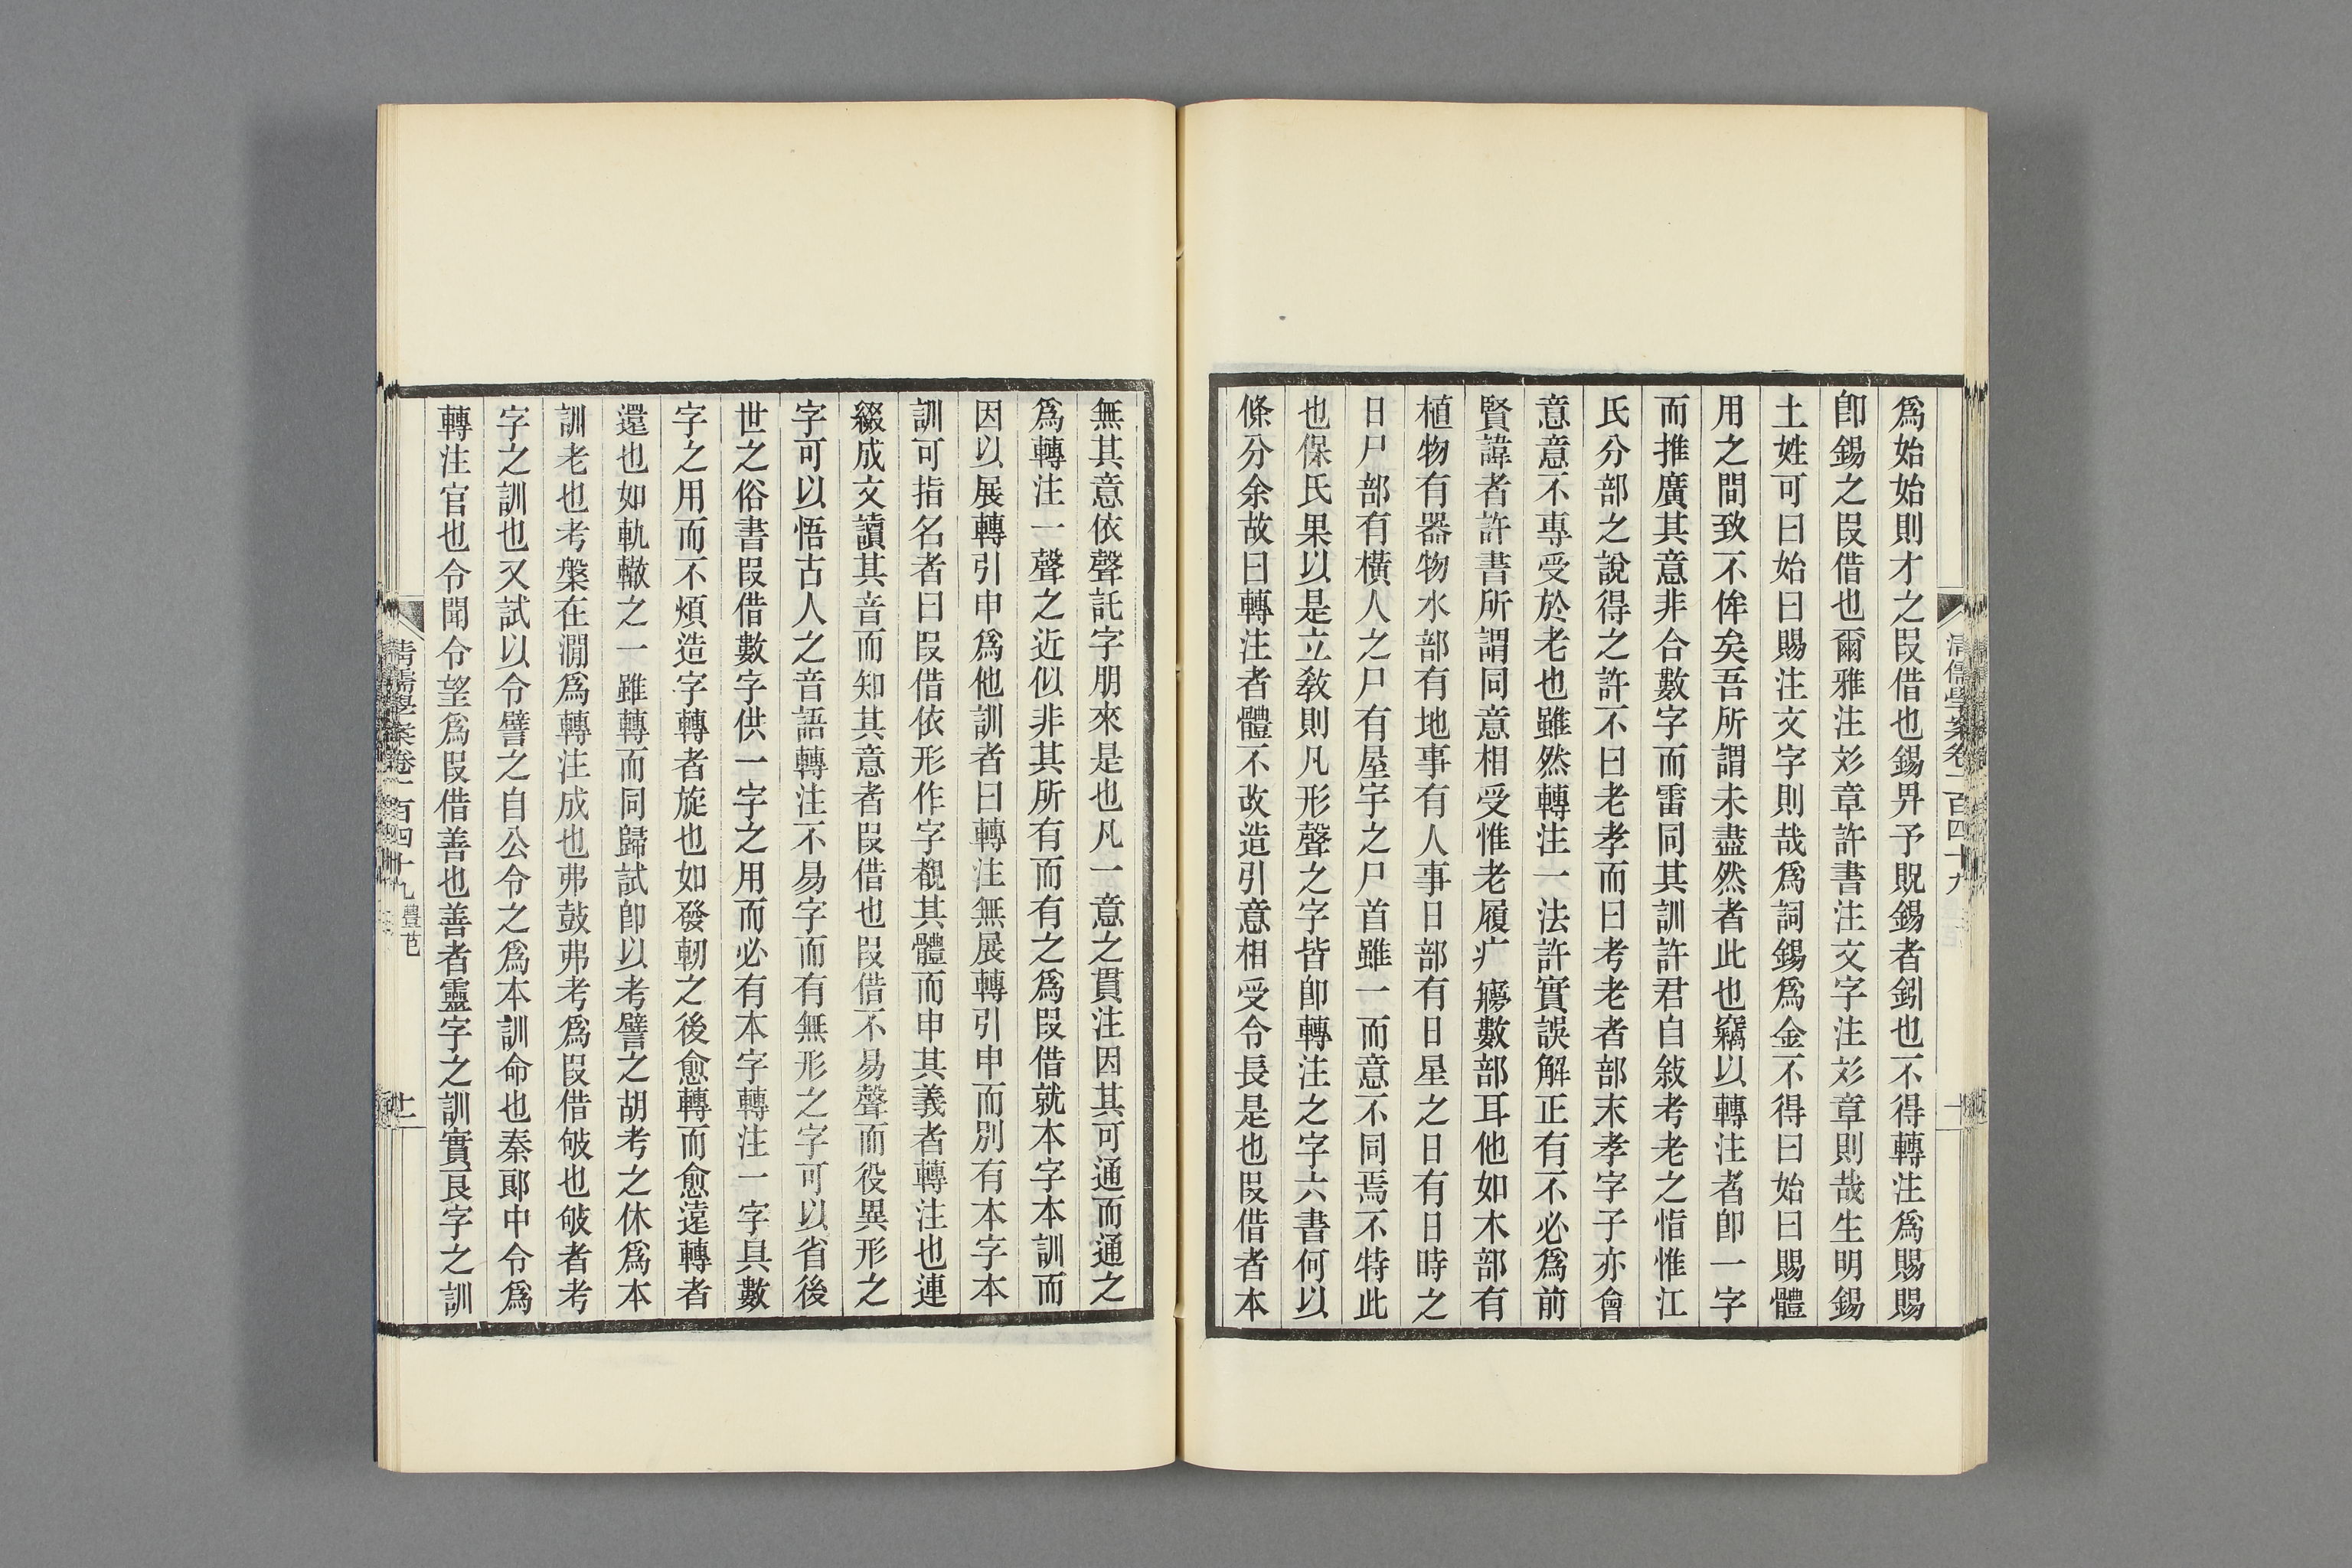 爲始始則才之叚借也錫畀予貺錫者釗也不得轉注爲賜賜
卽錫之叚借也爾雅注彣章許書注文字注彣章則哉生明錫
土姓可曰始曰賜注文字則哉爲詞錫爲金不得曰始曰賜體
用之間致不侔矣吾所謂未盡然者此也竊以轉注者卽一字
而推廣其意非合數字而雷同其訓許君自敍考老之恉惟江
氏分部之說得之許不曰老孝而曰考老者部末孝字子亦會
意意不專受於老也雖然轉注一法許實誤解正有不必爲前
賢諱者許書所謂同意相受惟老履疒㝱數部耳他如木部有
植物有器物水部有地事有人事日部有日星之日有日時之
日尸部有橫人之尸有屋宇之尸首雖一而意不同焉不特此
也保氏果以是立敎則凡形聲之字皆卽轉注之字六書何以
條分余故曰轉注者體不改造引意相受令長是也叚借者本
清儒學案卷一百四十九
無其意依聲託字朋來是也凡一意之貫注因其可通而通之
爲轉注一聲之近似非其所有而有之爲叚借就本字本訓而
因以展轉引申爲他訓者曰轉注無展轉引申而別有本字本
訓可指名者曰叚借依形作字覩其體而申其義者轉注也連
綴成文讀其音而知其意者叚借也叚借不易聲而役異形之
字可以悟古人之音語轉注不易字而有無形之字可以省後
世之俗書叚借數字供一字之用而必有本字轉注一字具數
字之用而不煩造字轉者旋也如發軔之後愈轉而愈遠轉者
還也如軌轍之一雖轉而同歸試卽以考譬之胡考之休爲本
訓老也考槃在澗爲轉注成也弗鼓弗考爲叚借攱也攱者考
字之訓也又試以令譬之自公令之爲本訓命也秦郎中令爲
轉注官也令聞令望爲叚借善也善者靈字之訓實㝩字之訓
清儒學案卷一百四十九 豐芑